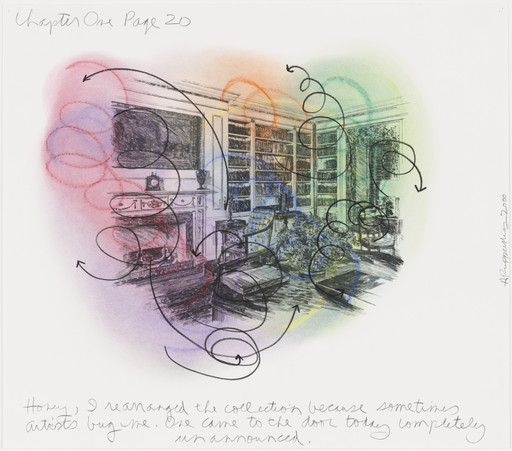 Chapter One Page 20
Honey, I rearranged the collection because sometimes
artists bug me. One came to the door today completely
unannounced.
A Ruppersberg 2000